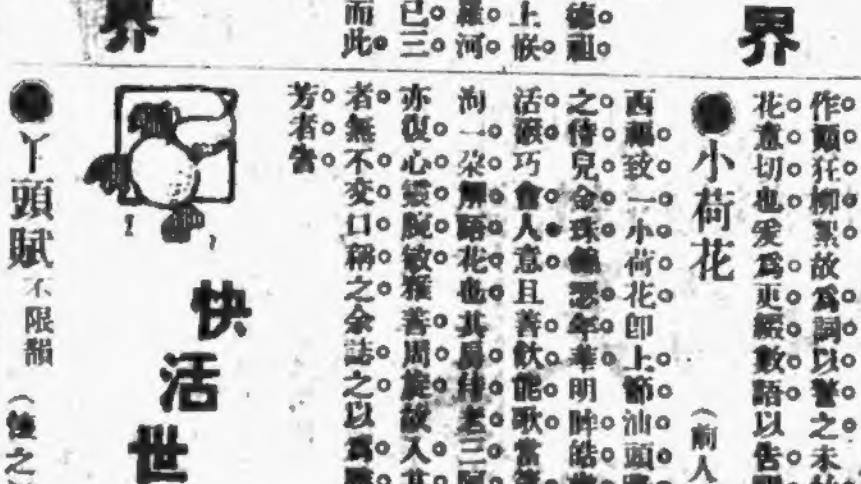 界
德祖
上
羅河
已三
而此
界
作顚狂柳絮故爲詞以警之未
花意切也愛爲更綴數語以告
小荷花
（前人
西 致一小荷花卽上節汕頭
之侍兒金珠 年華明眸皓
活潑巧會人意且善飲能歌當
洵一朵解語花也其 老三
亦復心靈腕敏雅善周旋故人
者無不交口稱之余誌之以爲
芳者告
快活世
丫頭賦
不限韻